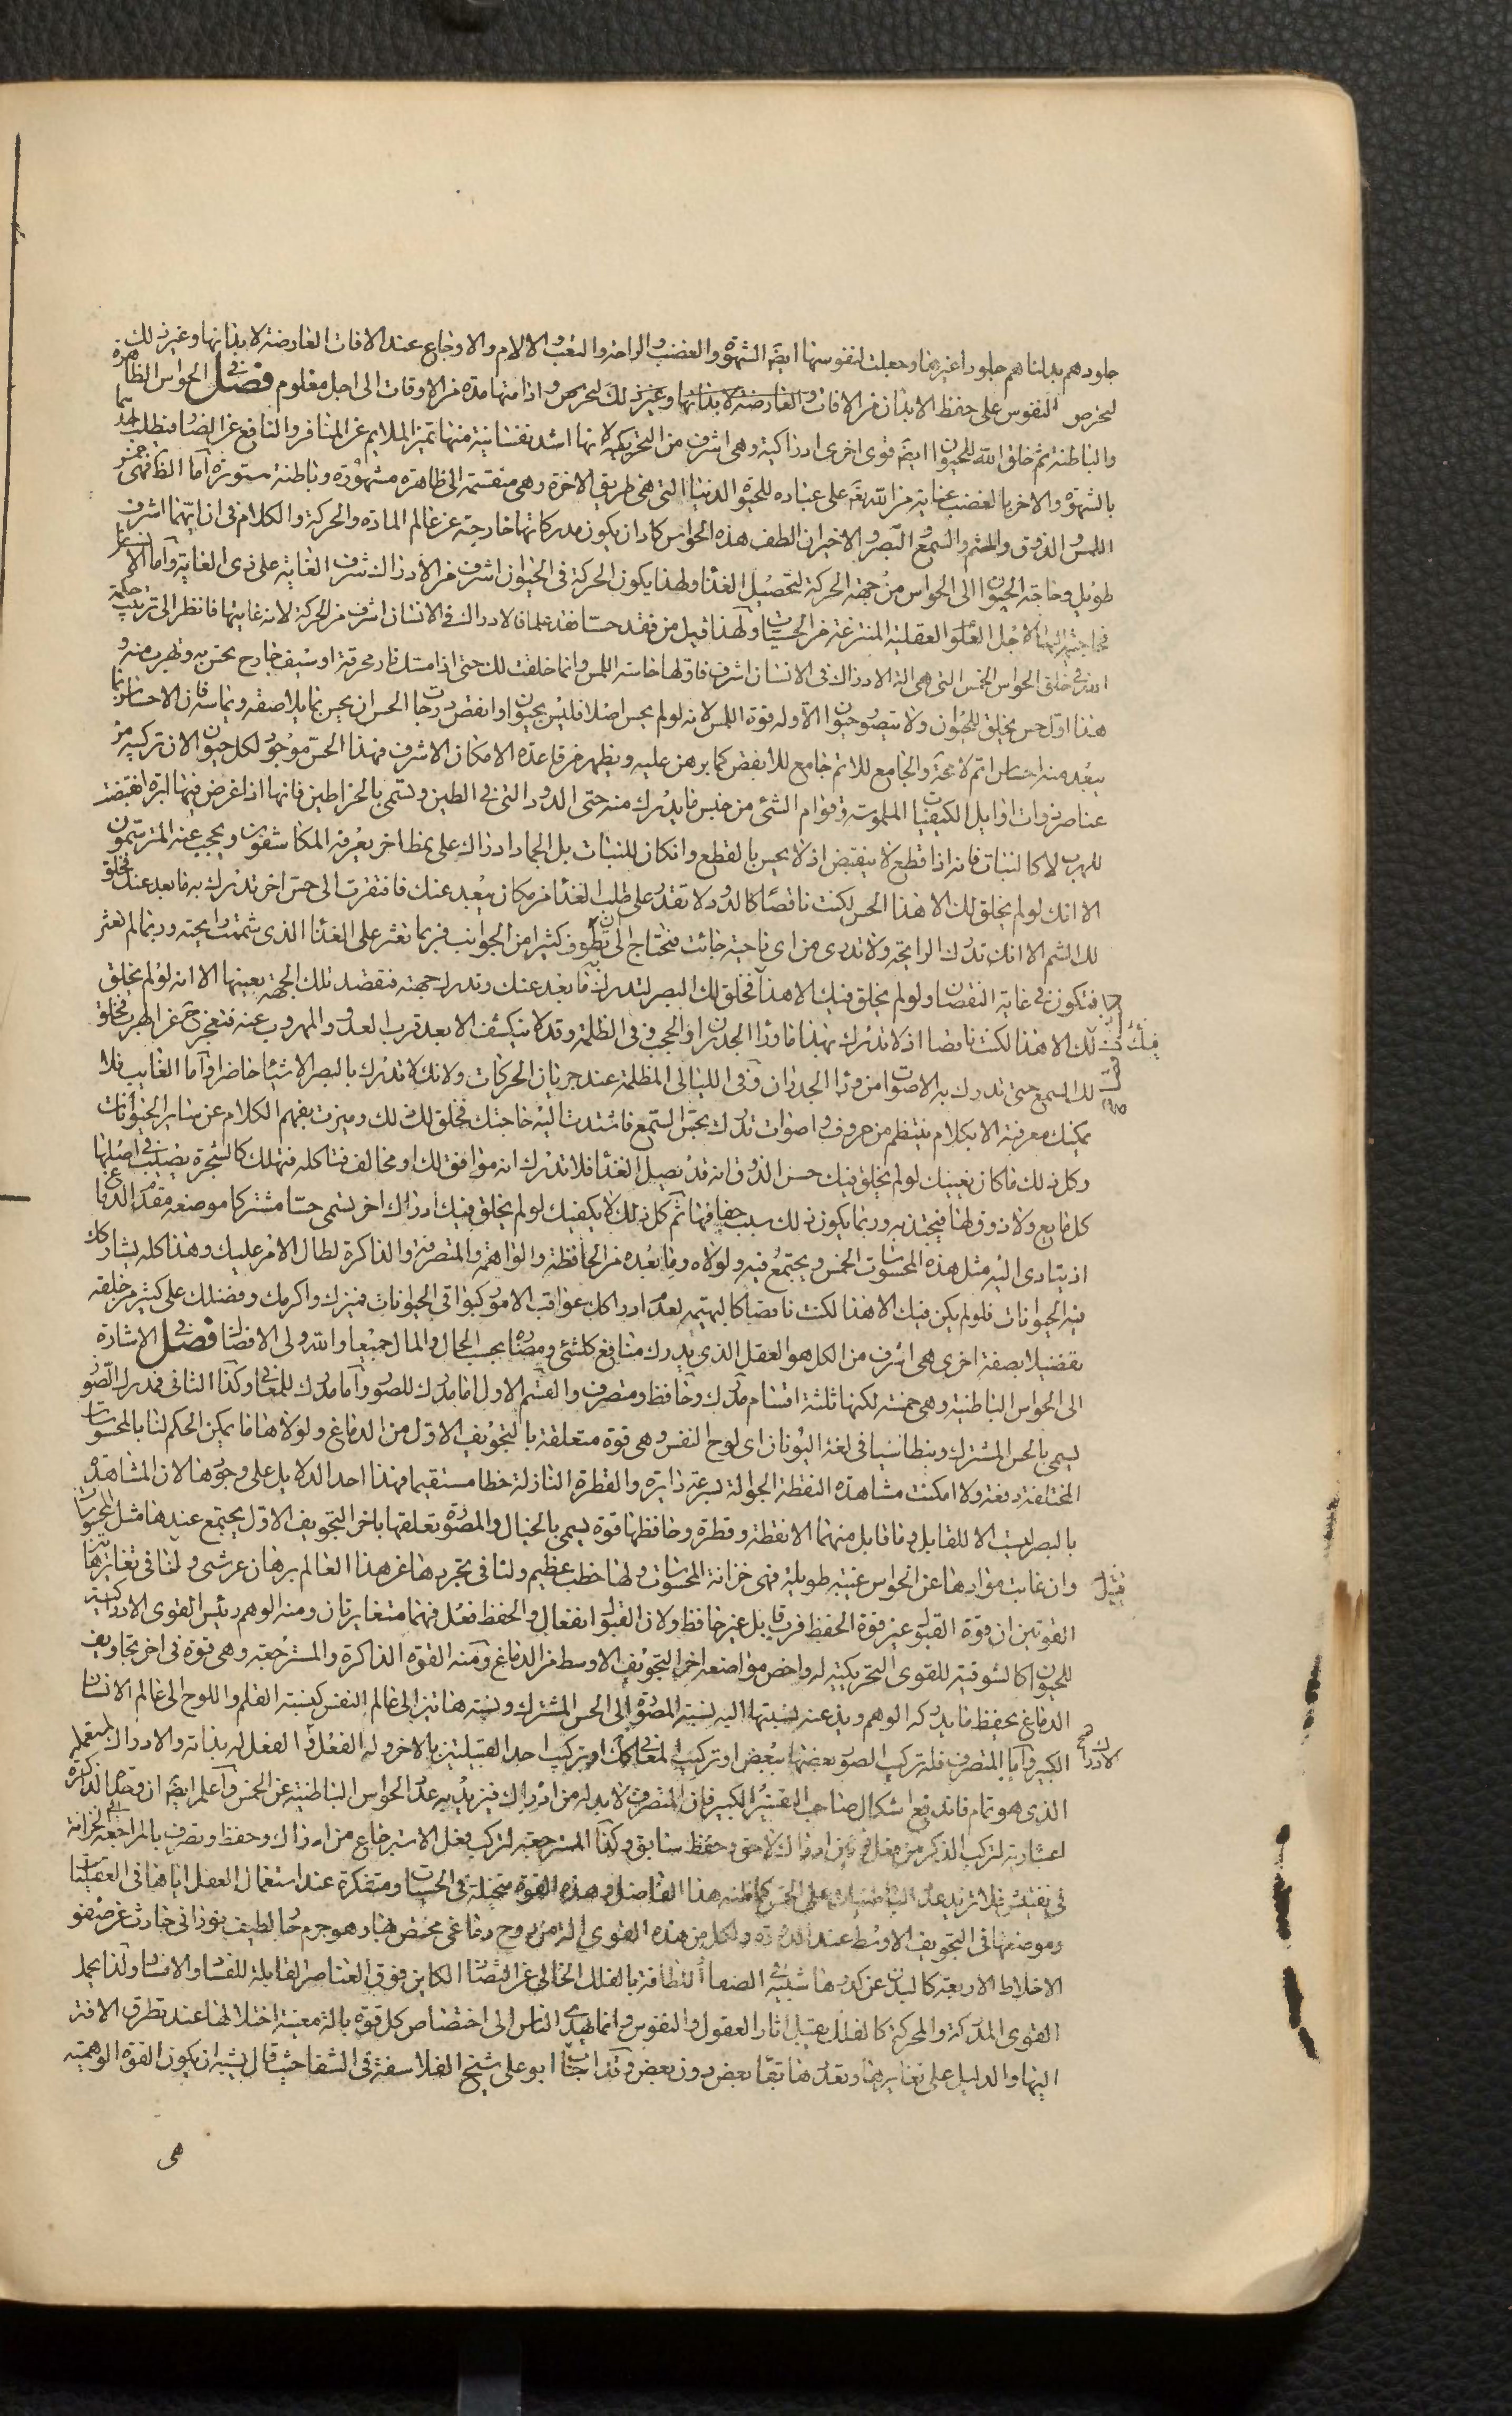 جلودهم بدلناهم جلودا غيرها وجعلت لنفوسها ايضا الشهوة والغضب والراحة والتعب والالام والاوجاع عند الافات العارضة لابدانها وغير ذلك
لتحرص النفوس على حفظ الابدان من الافات والعارضة لابدانها وغير ذلك لتحرص واذا منها مدة من الاوقات الى اجل معلوم فصل في الحواس الظاهرة
والباطنة ثم خلق الله للحيوان ايضا قوى اخرى ادراكية وهى اشرف من التحريكية لانها اشد نفسانية منها تميز الملايم عن المنافر والنافع عن الضار فتطلب احدهما
بالشهوة والاخر بالغضب عناية من الله تعالى على عباده للحيوة الدنيا التى هى طريق الاخرة وهى منقسمة الى ظاهرة مشهورة وباطنة مستورة اما الظاهرة فهى خمس
اللمس والذوق والشم والسمع والبصر والاخيران الطف هذه الحواس كاد ان يكون مدركاتها خارجة عن عالم المادة والحركة والكلام فى ان ايهما اشرف
طويل وحاجة الحيوان الى الحواس من جهة الحركة لتحصيل الغذا ولهذا يكون الحركة فى الحيوان اشرف من الادراك شرف الغاية على ذى الغاية واما الانسان
فحاجته اليها لاجل العلوم العقلية المنتزعة من الحسيات ولهذا قيل من فقد حسا فقد علما فالادراك فى الانسان اشرف من الحركة لانه غايتها فانظر الى ترتيب حكمة
الله فى خلق الحواس الخمس التى هى الة الادراك فى الانسان اشرف فاولها حاسة اللمس وانما خلقت لك حتى اذا مستك نار محرقة او سيف جارح تحس به وتهرب منه و
هذا اول حس يخلق للحيوان ولا يتصور حيوان الا وله قوة اللمس لانه لو لم يحس اصلا فليس بحيوان وانقص درجات الحس ان يحس بما يلاصقه ويماسه فان الاحساس بما
يبعد منه احساس اتم لا محة والجامع للاتم جامع للانقص كما برهن عليه ويظهر من قاعدة الامكان الاشرف فهذا الحس موجود لكل حيوان لان تركيبه من
عناصر ذوات اوايل الكيفيات الملموسة وقوام الشئ من جنس ما يدرك منه حتى الدود التى فى الطين وتسمى بالخراطين فانها اذا غرض فيها ابرة انقبضت
للهرب لا كالنبات فانه اذا قطع لا ينقبض اذ لا يحس بالقطع وان كان للنبات بل الجماد ادراك على نمط اخر يعرفه المكاشفون ويحجب عنه المترسمون
الا انك لو لم يخلق لك الا هذا الحس لكنت ناقصا كالدود لا تقدر على طلب الغذا من مكان يبعد عنك فافتقرت الى حس اخر تدرك به ما بعد عنك فخلق
لك الشم الا انك تدرك الرايحة ولا تدرى من اى ناحية جائت فتحتاج الى ان تطوف كثيرا من الجوانب فربما تعثر على الغذا الذى شممت رايحته وربما لم تعثر
فتكون فى غاية النقصان ولو لم يخلق فيك الا هذا فخلق لك البصر لتدرك به ما بعد عنك وتدرك جهته فتقصد تلك الجهة بعينها الا انه لو لم يخلق
لك الا هذا لكنت ناقصا اذ لا تدرك بهذا ما وراء الجدران والحجب وفى الظلمة وقد لا ينكشف الا بعد قرب العدو والمهروب عنه فتعجز ح عن الهرب فخلق
لك السمع حتى تدرك به الاصوات من وراء الجدران وفى الليالى المظلمة عند جريان الحركات ولانك لا تدرك بالبصر الا شيئا حاضرا واما الغايب فلا
يمكنك معرفته الا بكلام ينتظم من حروف واصوات تدرك بحس السمع فاشتدت اليه حاجتك فخلق لك ذلك وميزت بفهم الكلام عن ساير الحيوانات
وكل ذلك ما كان يغنيك لو لم يخلق فيك حس الذوق انه قد يصل الغذا فلا تدرك انه موافق لك او مخالف فتاكله فتهلك كالشجرة يصب فى اصلها
كل مايع ولا ذوق لها فيجذبه وربما يكون ذلك سبب جفافها ثم كل ذلك لا يكفيك لو لم يخلق فيك ادراك اخر تسمى حسا مشتركا موضعه مقدم الدماغ
اذ يتادى اليه مثل هذه المحسوسات الخمس ويجتمع فيه ولولاه وما بعده من الحافظة والواهمة والمتصرفة والذاكرة لطال الامر عليك وهذا كله يشاركك
فيه الحيوانات فلو لم يكن فيك الا هذا لكنت ناقصا كالبهيمة لعدم ادراكك عواقب الامور كبواقى الحيوانات فميزك واكرمك وفضلك على كثير من خلقه
تفضيلا بصفة اخرى هى اشرف من الكل هو العقل الذى يدرك منافع كل شئ ومضاره بحسب الحال والمال جميعا والله ولى الافضال فصل فى الاشارة
الى الحواس الباطنية وهى خمسة لكنها ثلثة اقسام مدرك وحافظ ومتصرف والقسم الاول اما مدرك للصور واما مدرك للمعانى وكذا الثانى فمدرك الصور
يسمى بالحس المشترك وبنطاسيا فى لغة اليونان اى لوح النفس وهى قوة متعلقة بالتجويف الاول من الدماغ ولولاها ما يمكن الحكم لنا بالمحسوسات
المختلفة دفعة ولا امكنت مشاهدة النقطة الجوالة بسرعة دايرة والقطرة النازلة خطا مستقيما فهذا احد الدلايل على وجودها لان المشاهدة
بالبصر ليست الا للمقابل وما قابل منهما الا نقطة وقطرة وحافظها قوة يسمى بالخيال والمصورة تعلقها باخر التجويف الاول يجتمع عندها مثل المحسوسات
وان غابت موادها عن الحواس غيبة طويلة فهى خزانة المحسوسات ولها خطب عظيم ولنا فى تجردها عن هذا العالم برهان عرشى ولنا فى تغايرها
القوتين ان قوة القبول غير قوة الحفظ فرب قابل غير حافظ ولان القبول انفعال والحفظ فعل فهما متغايرتان ومنه الوهم رئيس القوى الادراكية
للحيوان كالشوقية للقوى التحريكية له واخص مواضعه اخر التجويف الاوسط من الدماغ ومنه القوة الذاكرة والمسترجعة وهى قوة فى اخر تجاويف
الدماغ يحفظ ما يدركه الوهم ويذعنه نسبتها اليه نسبة المصورة الى الحس المشترك ونسبة هاتين الى عالم النفس كنسبة القلم واللوح الى عالم الانسان
الكبير واما المتصرف فله تركيب الصور بعضها ببعض او تركيب المعانى كذلك او تركيب احد القبيلتين بالاخر وله الفعل والفعل له بذاته والادراك لمستعمله
الذى هو تمام ذاته فاندفع اشكال صاحب التفسير الكبير فان المتصرف لا بد له من ادراك فيزيد به عدد الحواس الباطنية عن الخمس واعلم ايضا ان وحدة الذاكرة
اعتبارية لتركب الذكر من فعل قوتين ادراك لاحق وحفظ سابق وكذا المسترجعة لتركب فعل الاسترجاع من ادراك وحفظ وتصرف بالمراجعة الى الخزانة
فى تفتيش فلا تزيد عدد الباطنيات على الخمس كما ظنه هذا الفاضل وهذه القوة متخيلة فى الحسيات ومتفكرة عند استعمال العقل اياها فى العقليات
وموضعها فى التجويف الاوسط عند الدودة ولكل من هذه القوى الة من روح دماغى مختص بها وهو جرم حار لطيف نورانى حادث عن صفو
الاخلاط الاربعة كالبدن عن كدرها شبيه فى الصفاء النظافة بالفلك الخالى عن التضاد الكاين فوق العناصر القابلة للفساد والافساد ولذا يحمل
القوى المدركة والمحركة كالفلك يقبل اثار العقول والنفوس وانما يهدى الناس الى اختصاص كل قوة بالة معينة اختلالها عند تطرق الافة
اليها والدليل على تغايرها وتعددها بقاء بعض دون بعض وقد اجاب ابو على شيخ الفلاسفة فى الشفا حيث قال يشبه ان يكون القوة الوهمية
هى